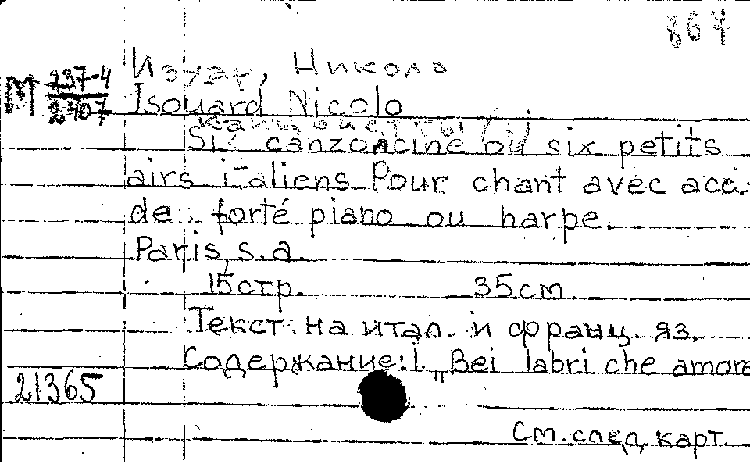 867
Изуар, Никола
М 237-4
2407
Isouard Nicolo
Канцонетты
Six canzoncine ou six petits
airs italiens Pour chant avec acc.
de forté piano ou harpe.
Paris, s.a.
15 стр. 35 см
Текст на итал. и франц. яз.
Содержание: 1. „Bei labri che amore
21365
См. след. карт.